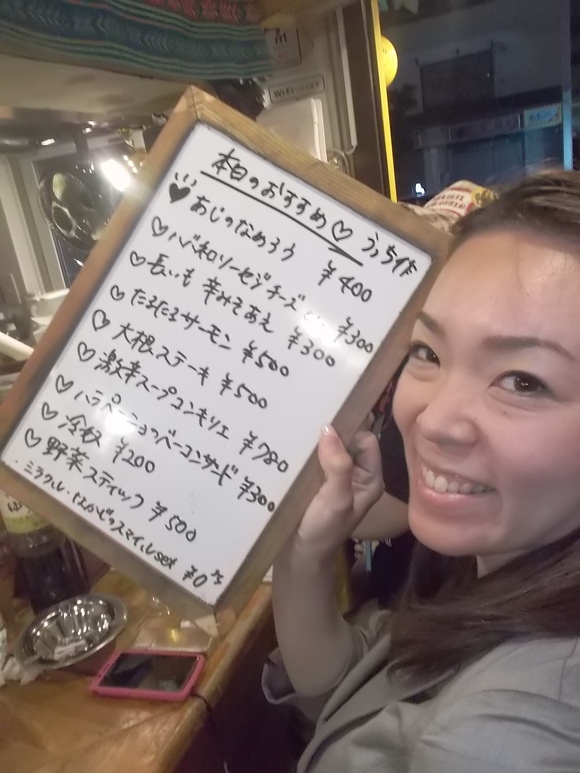 本日のおすすめ♡ うっち作
♥あじのなめろう ¥400
♡ハバネロソーセージチーズ ¥300
♡長いも辛みそあえ ¥300
♡たるたるサーモン ¥500
♡大根ステーキ ¥500
♡激辛スープコンキリエ ¥780
♡ハラペーニョベーコンサード ¥300
♡冷奴 ¥200
♡野菜スティック ¥500
・ミラクル・はみがきスマイルset ¥0
Wi-Fi